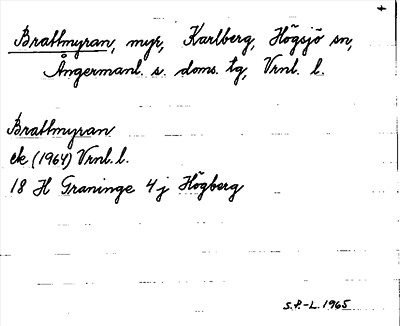 Brattmyran, myr, Karlberg, Högsjö sn,
Ångermanl. s. doms. tg, Vrnl. l.
Brattmyran
ek (1964) Vrnl. l.
18 H Graninge 4j Högberg
S.P.-L. 1965